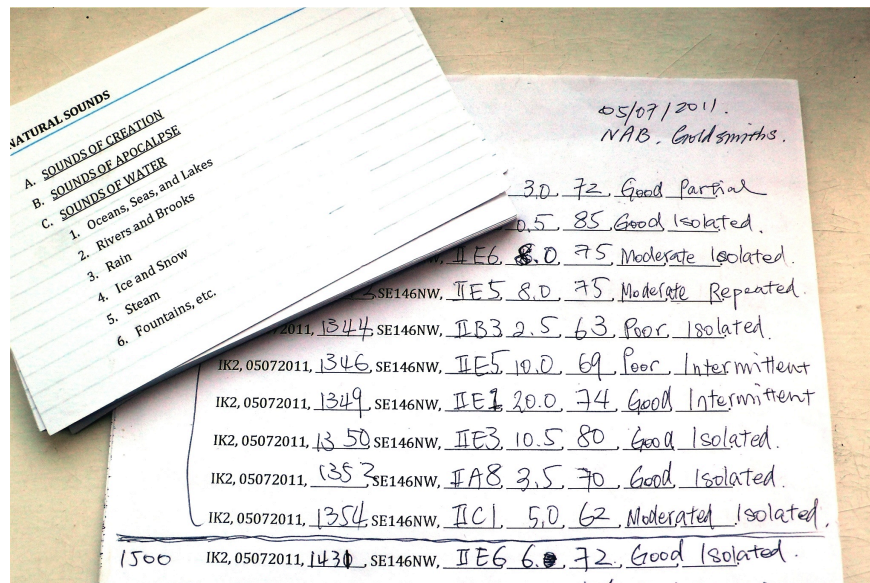 NATURAL SOUNDS
A. SOUNDS OF CREATION
B. SOUNDS OF APOCALPSE
C. SOUNDS OF WATER
1. Oceans, Seas, and Lakes
2. Rivers and Brooks
3. Rain
4. Ice and Snow
5. Steam
6. Fountains, etc.
05/07/2011.
NAB, Goldsmiths.
3.0, 72, Good Partial
0.5, 85, Good Isolated.
IIE6, 8.0, 75, Moderate Isolated.
SE146NW, IIE5, 8.0, 75, Moderate Repeated.
2011, 1344, SE146NW, IIB3, 2.5, 63, Poor, Isolated.
IK2, 05072011, 1346, SE146NW, IIE5, 10.0, 69, Poor, Intermittent
IK2, 05072011, 1349, SE146NW, IIE1, 20.0, 74, Good Intermittent
IK2, 05072011, 1350, SE146NW, IIE3, 10.5, 80, Good Isolated.
IK2, 05072011, 1352, SE146NW, IIA8, 3.5, 70, Good, Isolated.
IK2, 05072011, 1354, SE146NW, IIC1, 5.0, 62, Moderated Isolated.
1500 IK2, 05072011, 1431, SE146NW, IIE6, 72, Good Isolated.